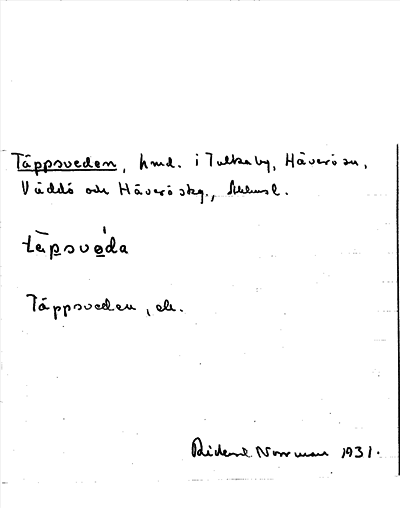 Täppsveden, hmd. i Tulkaby, Häverö sn,
Väddö och Häverö skg.,
täpsvèda
Täppsveden, ek.
Rickard Norrman 1931.